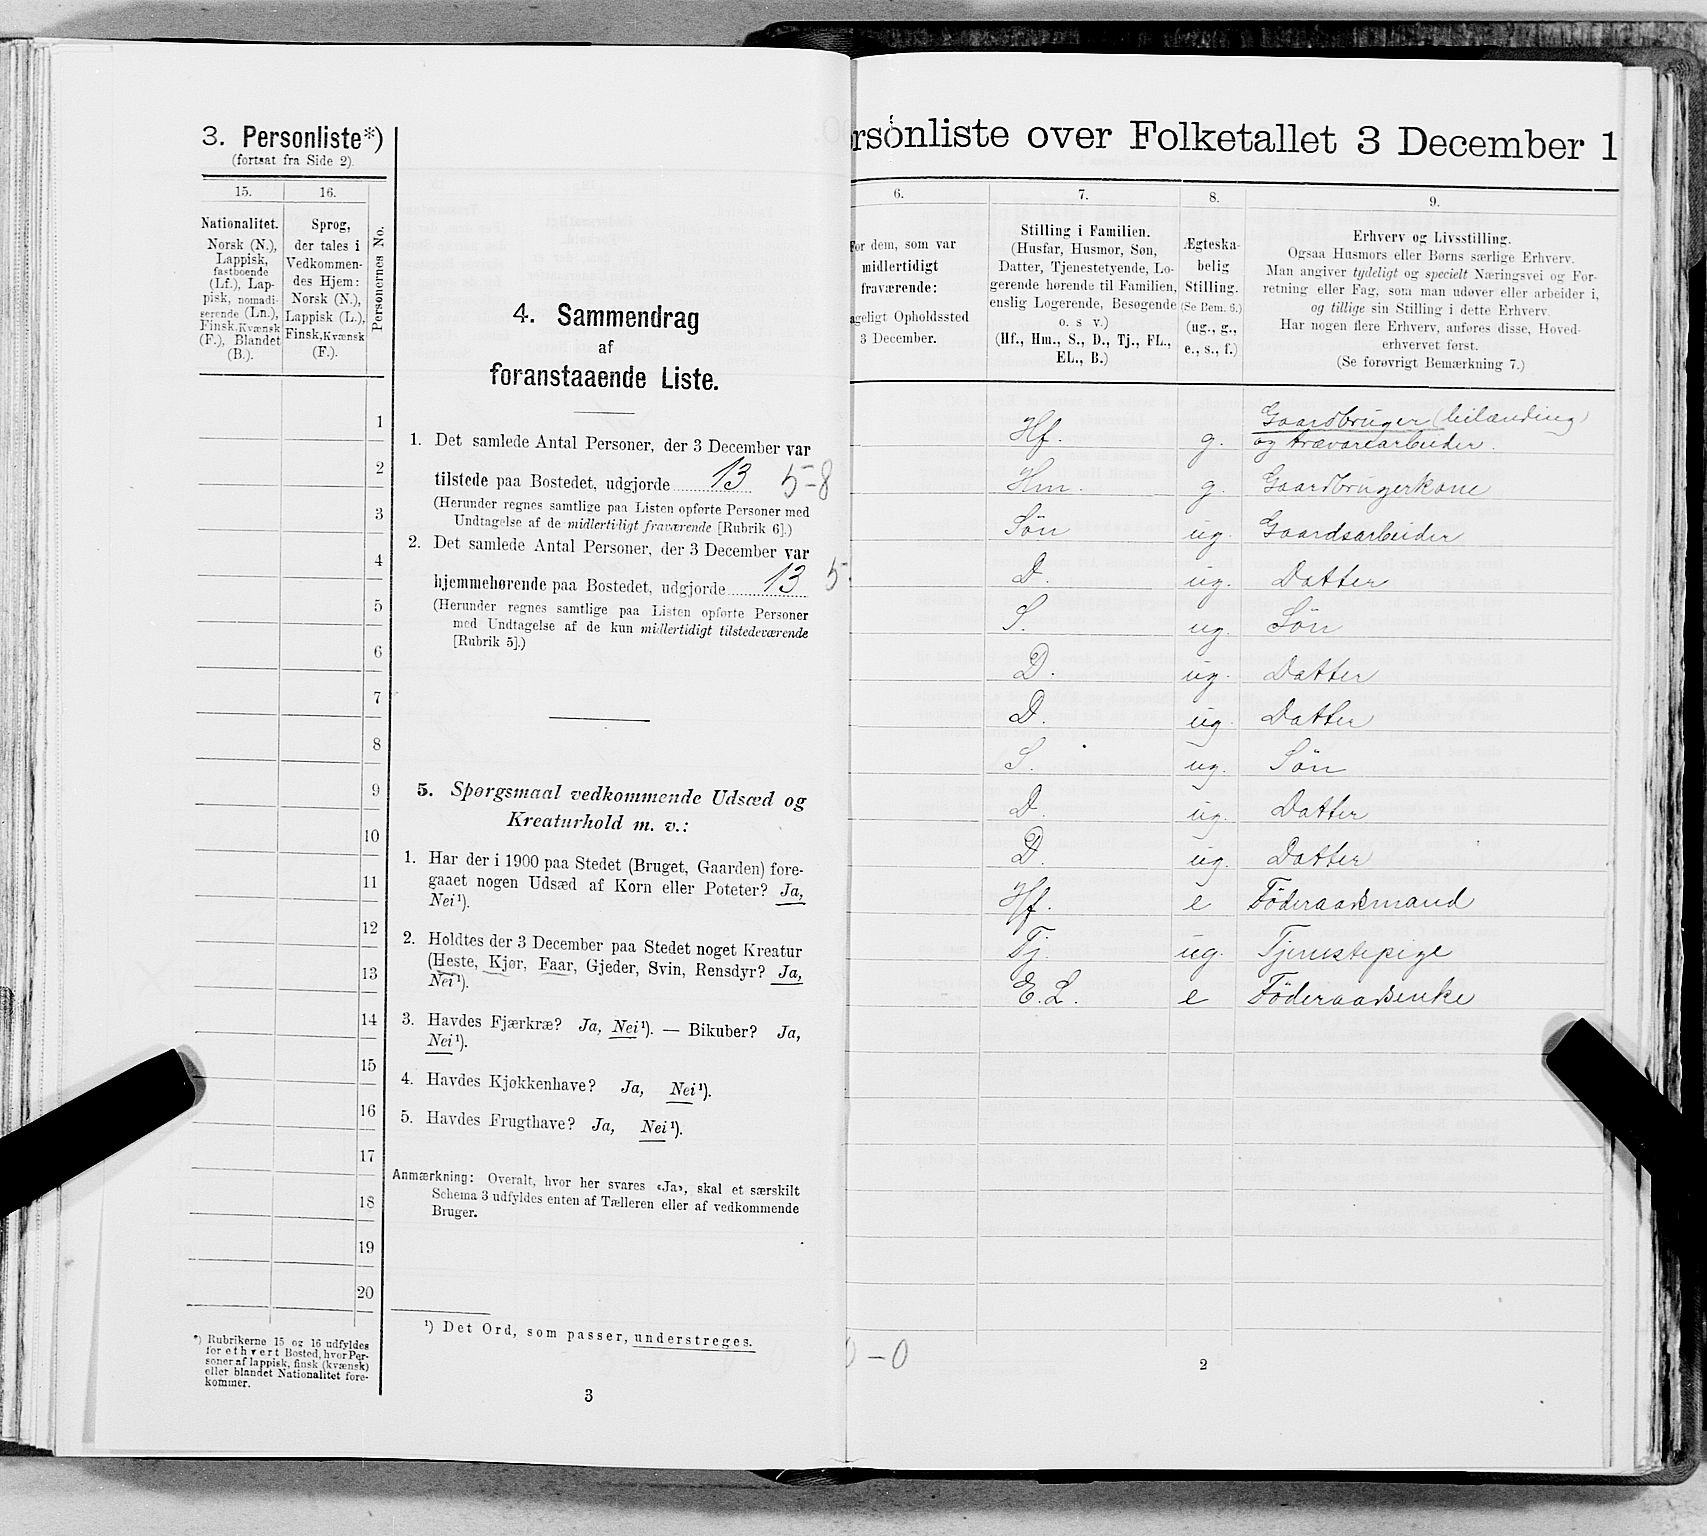 3. Personliste*)
(fortsat fra Side 2).
15.
16.
Nationalitet.
Norsk (N.),
Lappisk,
fastboende
(Lf.), Lap-
pisk, nomadi-
serende (Ln.),
Finsk, Kvænsk
(F.), Blandet
(B.).
Sprog,
der tales i
Vedkommen-
des Hjem:
Norsk (N.),
Lappisk (L.),
Finsk, Kvænsk
(F.).
Personernes No.
1
2
3
4
5
6
7
8
9
10
11
12
13
14
15
16
17
18
19
20
*) Rubrikerne 15 og 16 udfyldes
for ethvert Bosted, hvor Per-
soner af lappisk, finsk (kvænsk)
eller blandet Nationalitet fore-
kommer.
4. Sammendrag
af
foranstaaende Liste.
1. Det samlede Antal Personer, der 3 December var
tilstede paa Bostedet, udgjorde 13 5-8
(Herunder regnes samtlige paa Listen opførte Personer med
Undtagelse af de midlertidigt fraværende [Rubrik 6].)
2. Det samlede Antal Personer, der 3 December var
hjemmehørende paa Bostedet, udgjorde 13 5
(Herunder regnes samtlige paa Listen opførte Personer
med Undtagelse af de kun midlertidigt tilstedeværende
[Rubrik 5].)
5. Spørgsmaal vedkommende Udsæd og
Kreaturhold m. v.:
1. Har der i 1900 paa Stedet (Bruget, Gaarden) fore-
gaaet nogen Udsæd af Korn eller Poteter? Ja,
Nei¹).
2. Holdtes der 3 December paa Stedet noget Kreatur
(Heste, Kjør, Faar, Gjeder, Svin, Rensdyr? Ja,
Nei¹).
3. Havdes Fjærkræ? Ja, Nei¹). — Bikuber? Ja,
Nei¹).
4. Havdes Kjøkkenhave? Ja, Nei¹).
5. Havdes Frugthave? Ja, Nei¹).
Anmærkning: Overalt, hvor her svares «Ja», skal et særskilt
Schema 3 udfyldes enten af Tælleren eller af vedkommende
Bruger.
¹) Det Ord, som passer, understreges.
3
rsonliste over Folketallet 3 December 1
6.
7.
8.
9.
For dem, som var
midlertidigt
fraværende:
ageligt Opholdssted
3 December.
Stilling i Familien.
(Husfar, Husmor, Søn,
Datter, Tjenestetyende, Lo-
gerende hørende til Familien,
enslig Logerende, Besøgende
o. s v.)
(Hf., Hm., S., D., Tj., FL.,
EL., B.)
Ægteska-
belig
Stilling.
(Se Bem. 6.)
(ug., g.,
e., s., f.)
Erhverv og Livsstilling.
Ogsaa Husmors eller Børns særlige Erhverv.
Man angiver tydeligt og specielt Næringsvei og For-
retning eller Fag, som man udøver eller arbeider i,
og tillige sin Stilling i dette Erhverv.
Har nogen flere Erhverv, anføres disse, Hoved-
erhvervet først.
(Se forøvrigt Bemærkning 7.)
Gaardbruger (leilænding)
Hf. g. og trævarearbeider.
Hm. g. Gaardbrugerkone
Søn ug. Gaardsarbeider
D. ug. Datter
S. ug. Søn
D. ug. Datter
D. ug. Datter
S. ug. Søn
D. ug. Datter
D. ug. Datter
Hf. e Föderaadsmand
Tj. ug. Tjenestepige
E.L. e Föderaadsenke
0-0
2